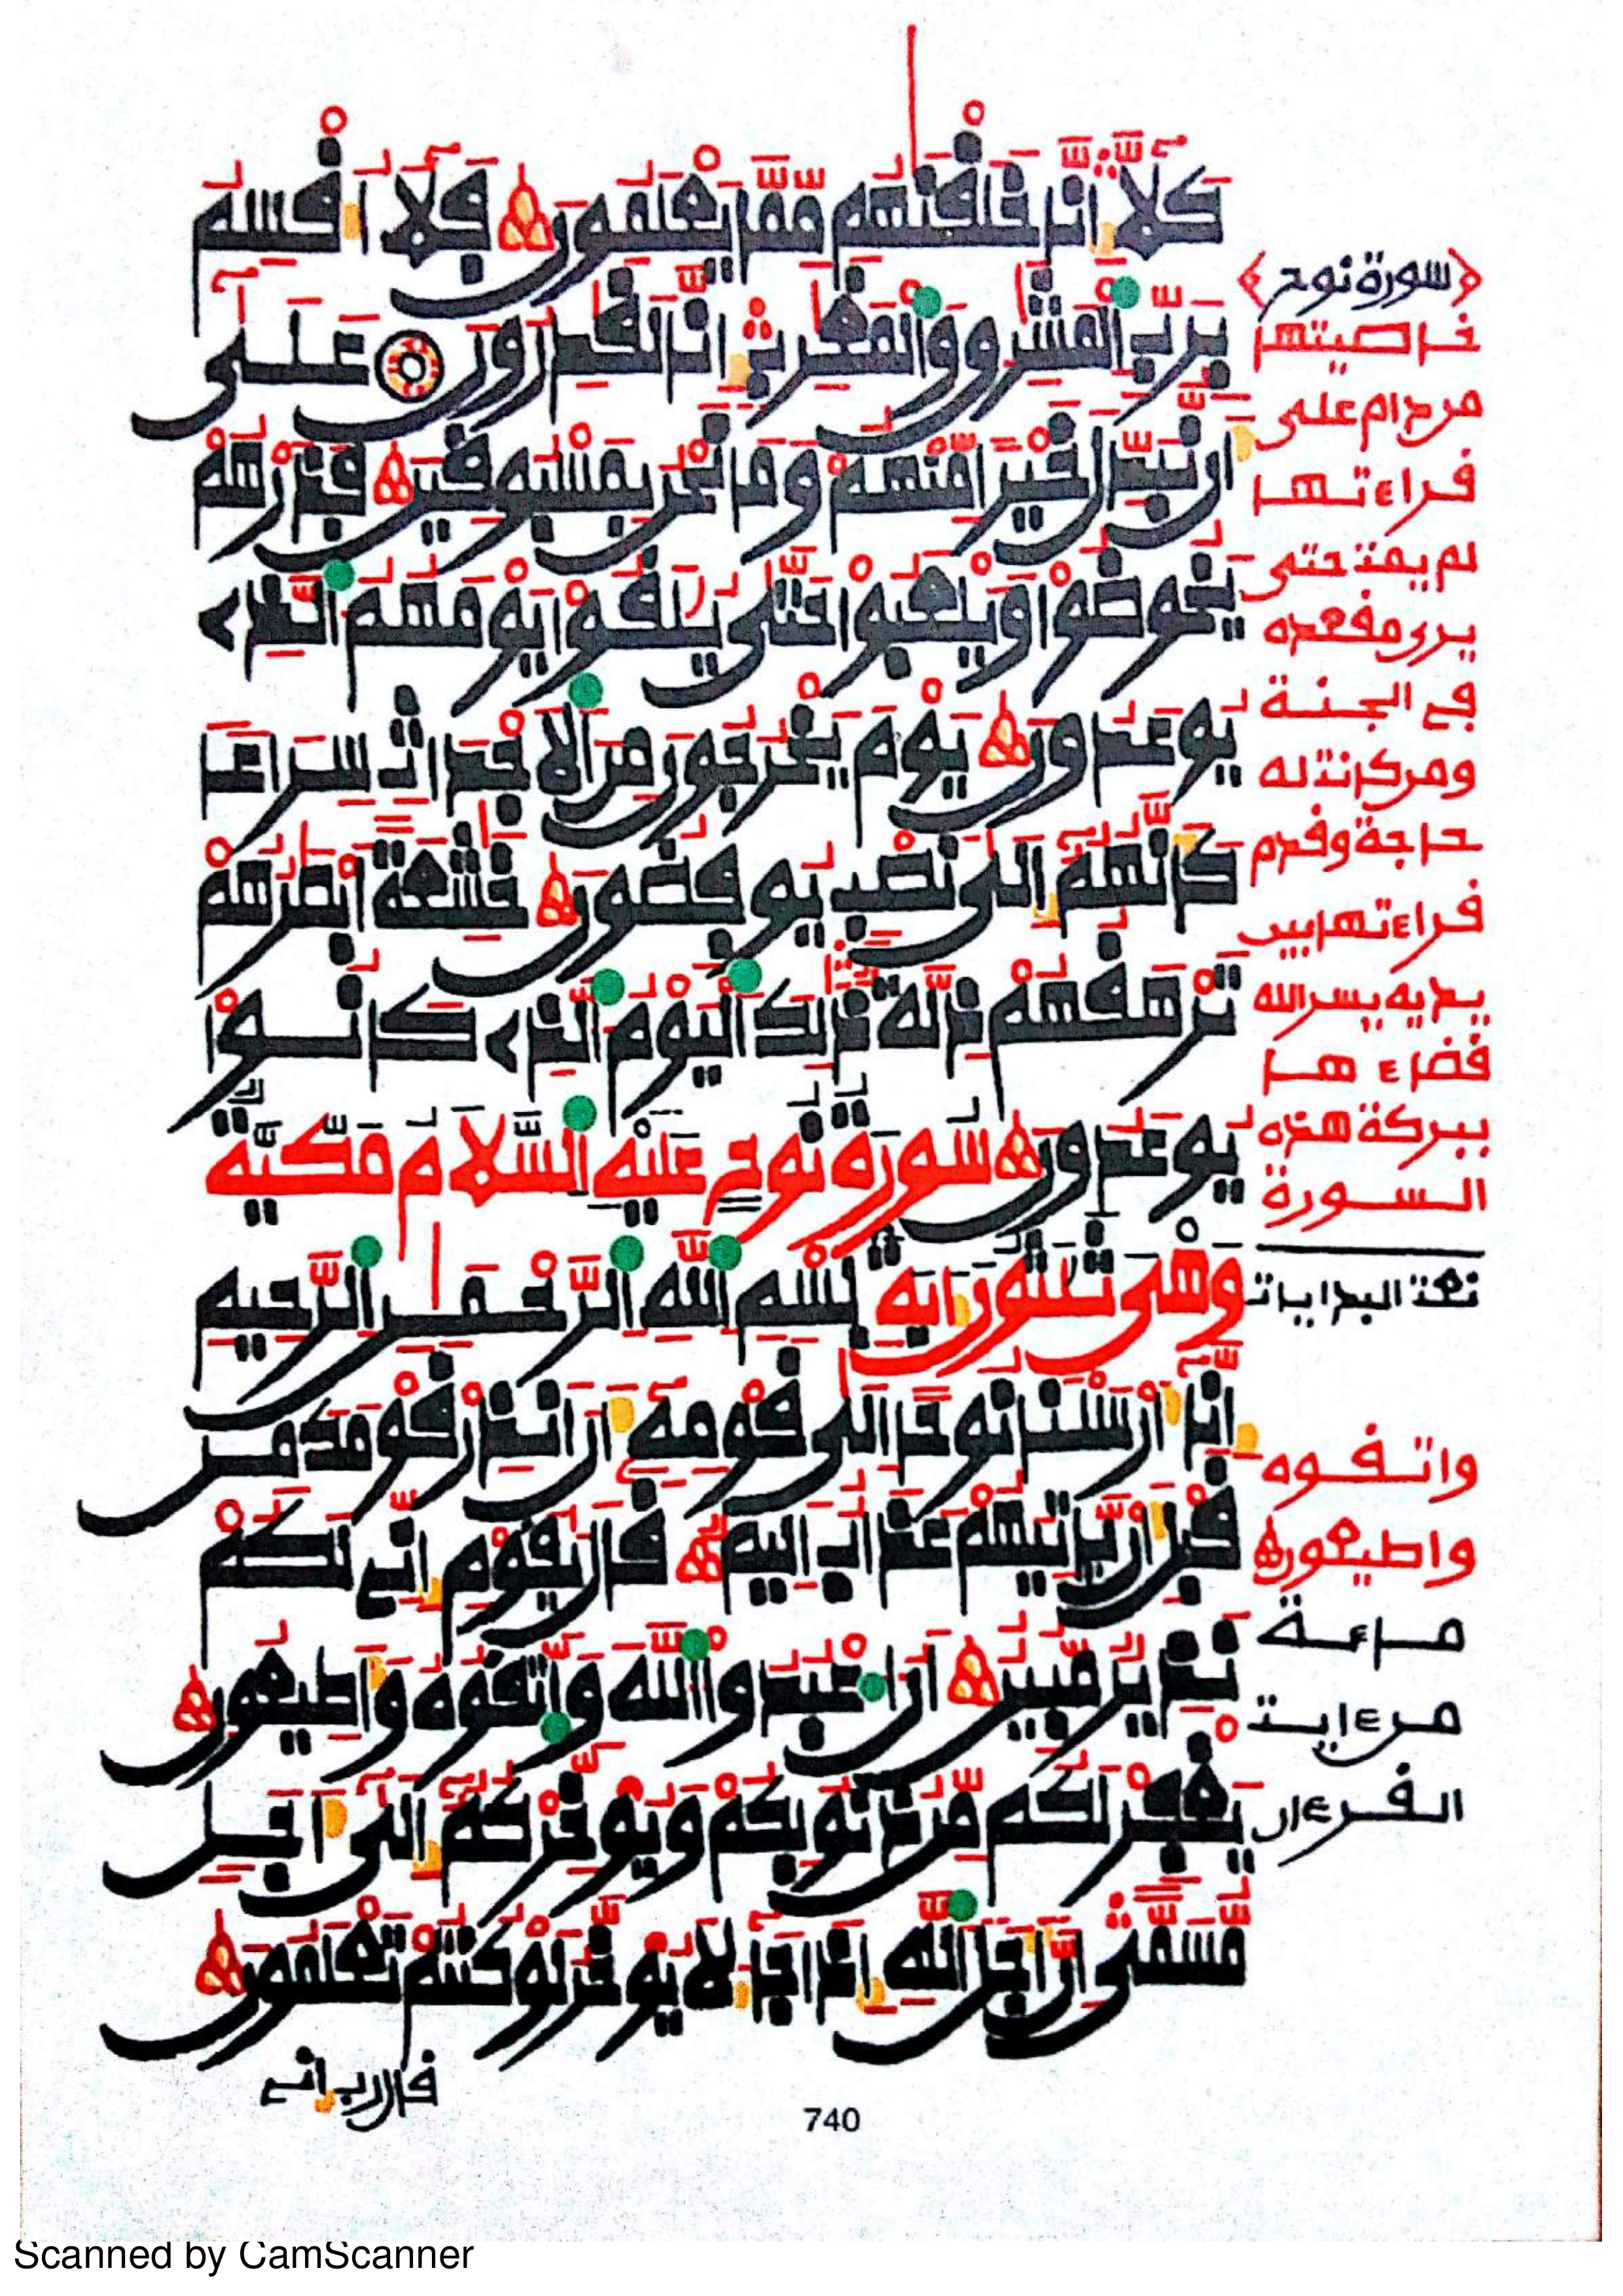 كَلَّآ إِنَّا خَلَقْنَٰهُم مِّمَّا يَعْلَمُونَ فَلَآ أُقْسِمُ
بِرَبِّ اِ۬لْمَشَٰرِقِ وَالْمَغَٰرِبِ إِنَّا لَقَٰدِرُونَ عَلَىٰٓ
أَن نُّبَدِّلَ خَيْراً مِّنْهُمْ وَمَا نَحْنُ بِمَسْبُوقِينَ فَذَرْهُمْ
يَخُوضُواْ وَيَلْعَبُواْ حَتَّىٰ يُلَٰقُواْ يَوْمَهُمُ اُ۬لَّذِے
يُوعَدُونَ يَوْمَ يَخْرُجُونَ مِنَ اَ۬لْأَجْدَاثِ سِرَاعاً
كَأَنَّهُمُۥٓ إِلَىٰ نَصْبٍ يُوفِضُونَ خَٰشِعَةً أَبْصَٰرُهُمْ
تَرْهَقُهُمْ ذِلَّةٌ ذَٰلِكَ اَ۬لْيَوْمُ اُ۬لَّذِے كَانُواْ
يُوعَدُونَ سُورَةُ نُوحٍ عَلَيْهِ اِ۬لسَّلَامُ مَكِّيَّةٌ
وَهْىَ ثَلَٰثُونَ ءَايَةً بِسْمِ اِ۬للَّهِ اِ۬لرَّحْمَٰنِ اِ۬لرَّحِيمِ
إِنَّآ أَرْسَلْنَا نُوحاً إِلَىٰ قَوْمِهِۦٓ أَنْ أَنذِرْ قَوْمَكَ مِن
قَبْلِ أَن يَّأْتِيَهُمْ عَذَابٌ أَلِيمٌ قَالَ يَٰقَوْمِ إِنِّے لَكُمْ
نَذِيرٌ مُّبِينٌ أَنُ اُ۟عْبُدُواْ اُ۬للَّهَ وَاتَّقُوهُ وَأَطِيعُونِ
يَغْفِرْ لَكُم مِّن ذُنُوبِكُمْ وَيُؤَخِّرْكُمُۥٓ إِلَىٰٓ أَجَلٍ
مُّسَمًّى إِنَّ أَجَلَ اَ۬للَّهِ إِذَا جَآءَ لَا يُؤَخَّرُ لَوْ كُنتُمْ تَعْلَمُونَ
قال رب إني
سورة نوح
خاصيتها
من دام على
قراءتها
لم يمت حتى
يرى مقعده
في الجنة
ومن كانت له
حاجة وقدم
قراءتها بين
يديه يسر الله
قضاءها
ببركة هذه
السورة
تمت البدايات
واتقوه
وأطيعون
مائة
من ءايت
القرءان
740
Scanned by CamScanner